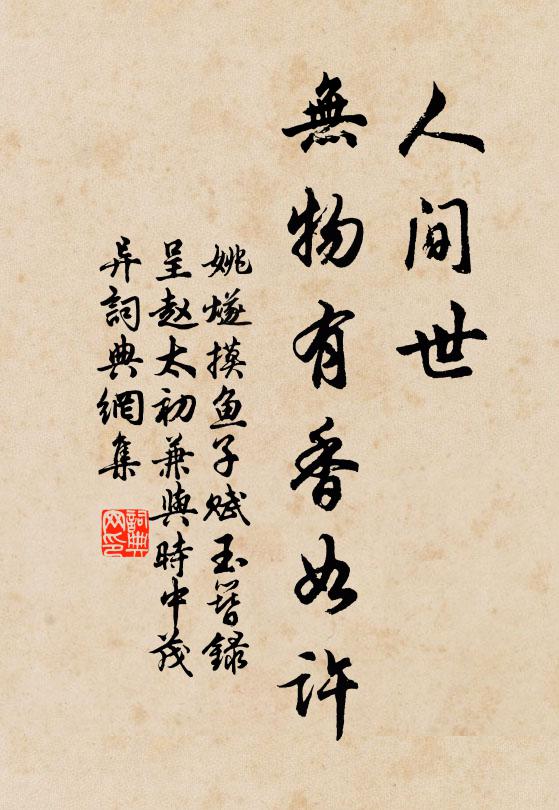 人間世
無物有香如許
姚燧摸鱼子賦玉簪録
呈赵太初兼與時中茂
异詞典網集
詞典
网印